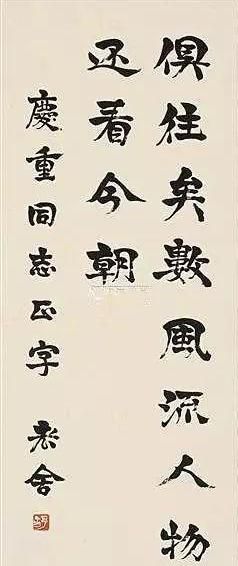 俱往矣數風流人物
还看今朝
慶重同志正字
老舍